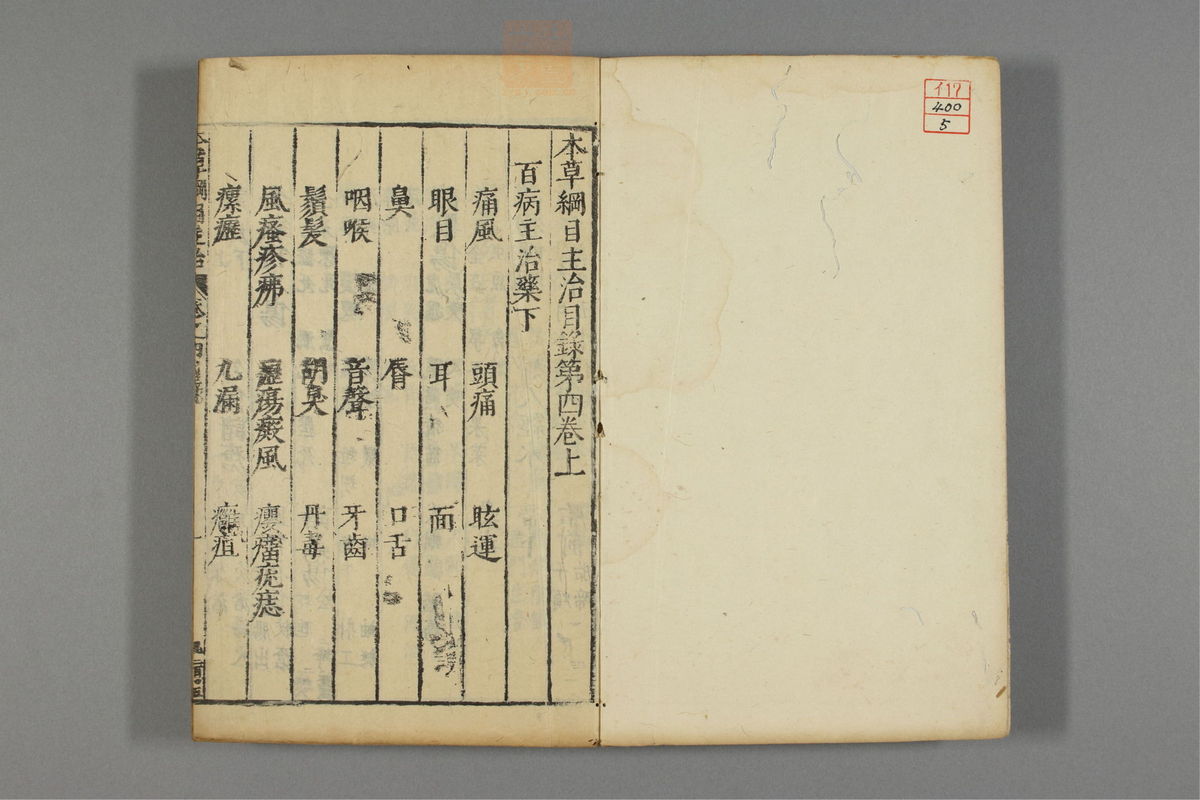 117
400
5
本草綱目主治目錄第四卷上
百病主治藥下
痛風　頭痛　眩運
眼目　耳　面
鼻　脣　口舌
咽喉　音聲　牙齒
鬚髮　胡臭　丹毒
風瘙疹疿　癧瘍癜風　癭瘤疣痣
瘰癧　九漏　癰疽